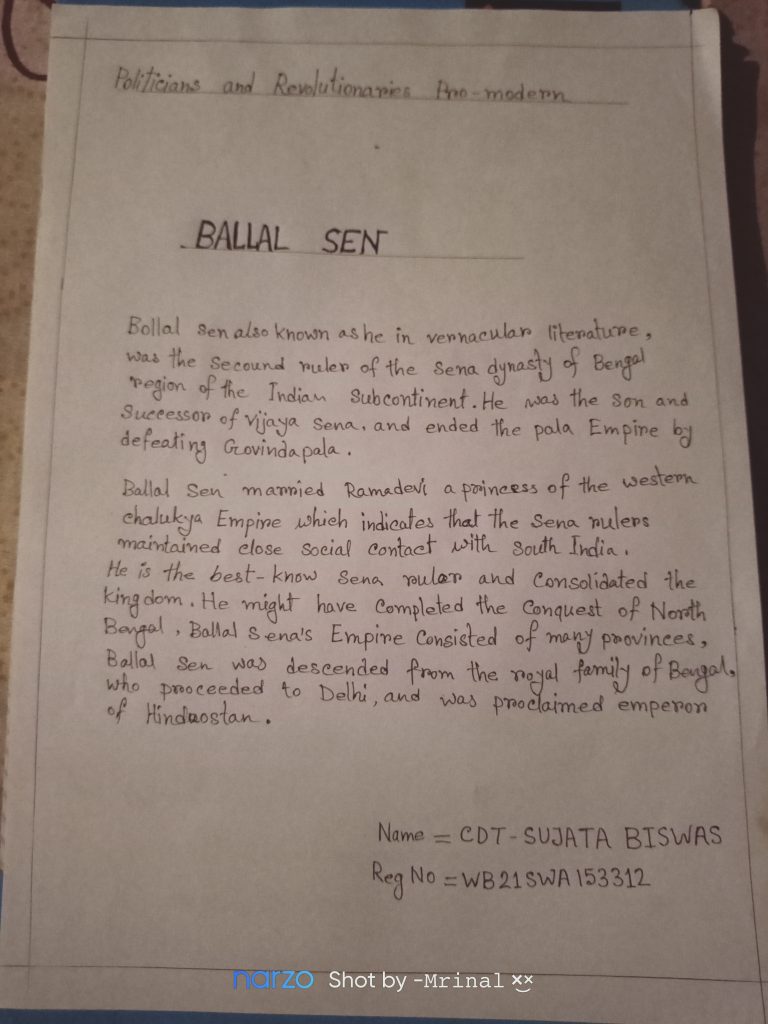 Politicians and Revolutionaries Pro-modern
BALLAL SEN
Bollal sen also known as he in vernacular literature,
was the Secound ruler of the Sena dynasty of Bengal
region of the Indian Subcontinent. He was the son and
Successor of Vijaya Sena, and ended the pala Empire by
defeating Govindapala.
Ballal Sen married Ramadevi a princess of the western
chalukya Empire which indicates that the Sena rulers
maintained close social contact with South India.
He is the best-know Sena rular and Consolidated the
kingdom. He might have Completed the Conquest of North
Bengal, Ballal Sena's Empire Consisted of many provinces,
Ballal Sen was descended from the royal family of Bengal,
who proceeded to Delhi, and was proclaimed emperor
of Hinduostan.
Name = CDT-SUJATA BISWAS
Reg No = WB21SWA153312
narzo Shot by -Mrinal